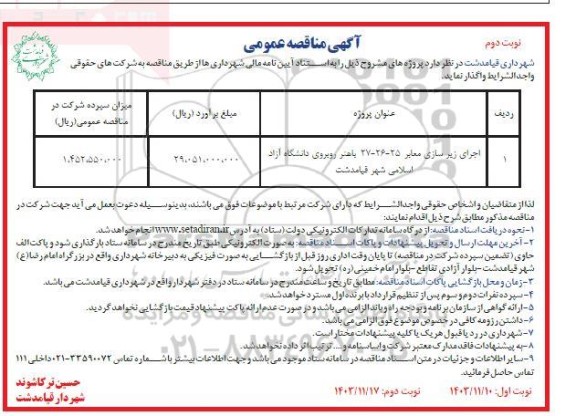 آگهی مناقصه عمومی
نوبت دوم
شهرداری قیامدشت در نظر دارد پروژه های مشروح ذیل را به استناد آیین نامه مالی شهرداری ها از طریق مناقصه به شرکت های حقوقی
واجد الشرایط واگذار نماید.
ردیف عنوان پروژه مبلغ برآورد (ریال) میزان سپرده شرکت در مناقصه عمومی(ریال)
۱ اجرای زیر سازی معابر ۲۵-۲۶-۲۷ باهنر روبروی دانشگاه آزاد اسلامی شهر قیامدشت ۲۹،۰۵۱،۰۰۰،۰۰۰ ۱،۴۵۲،۵۵۰،۰۰۰
لذا از متقاضیان و اشخاص حقوقی واجد الشرایط که دارای شرکت مرتبط با موضوعات فوق می باشند، بدینوسیله دعوت بعمل می آید جهت شرکت در
مناقصه مذکور مطابق شرح ذیل اقدام نمایند:
۱-نحوه دریافت اسناد مناقصه: از درگاه سامانه تدارکات الکترونیکی دولت (ستاد) به آدرس www.setadiran.ir انجام خواهد شد.
۲-آخرین مهلت ارسال و تحویل پیشنهادات و پاکات اسناد مناقصه: به صورت الکترونیکی طبق تاریخ مندرج در سامانه ستاد بارگذاری شود و پاکت الف
حاوی (تضمین سپرده شرکت در مناقصه) تا پایان وقت اداری روز قبل از بازگشایی به صورت فیزیکی به دبیرخانه شهرداری واقع در بزرگراه امام رضا (ع)
شهر قیامدشت -بلوار آزادی تقاطع -بلوار امام خمینی (ره) تحویل شود.
۳-زمان و محل بازگشایی پاکات اسناد مناقصه: مطابق تاریخ و ساعت مندرج در سامانه ستاد در دفتر شهردار واقع در شهرداری قیامدشت می باشد.
۴- سپرده نفرات دوم و سوم پس از تنظیم قرارداد با برنده اول مسترد خواهد شد.
۵-ارائه گواهی از سازمان برنامه و بودجه راه و باند الزامی می باشد و در صورت عدم ارائه پاکت پیشنهاد قیمت بازگشایی نخواهد گردید.
۶-داشتن رزومه کافی در خصوص موضوع فوق الزامی می باشد.
۷-شهرداری در رد یا قبول هر یک یا کلیه پیشنهادات مختار است.
۸-به پیشنهادات فاقد مدارک معتبر شرکت و اساسنامه و ... ترتیب اثر داده نخواهد شد.
۹-سایر اطلاعات و جزئیات در متن اسناد مناقصه در سامانه ستاد موجود می باشد و جهت اطلاعات بیشتر با شماره تماس ۳۳۵۹۰۰۷۲-۰۲۱ داخلی ۱۱۱
تماس حاصل فرمائید.
نوبت اول: ۱۴۰۳/۱۱/۱۰ نوبت دوم: ۱۴۰۳/۱۱/۱۷
حسین ترکاشوند
شهردار قیامدشت